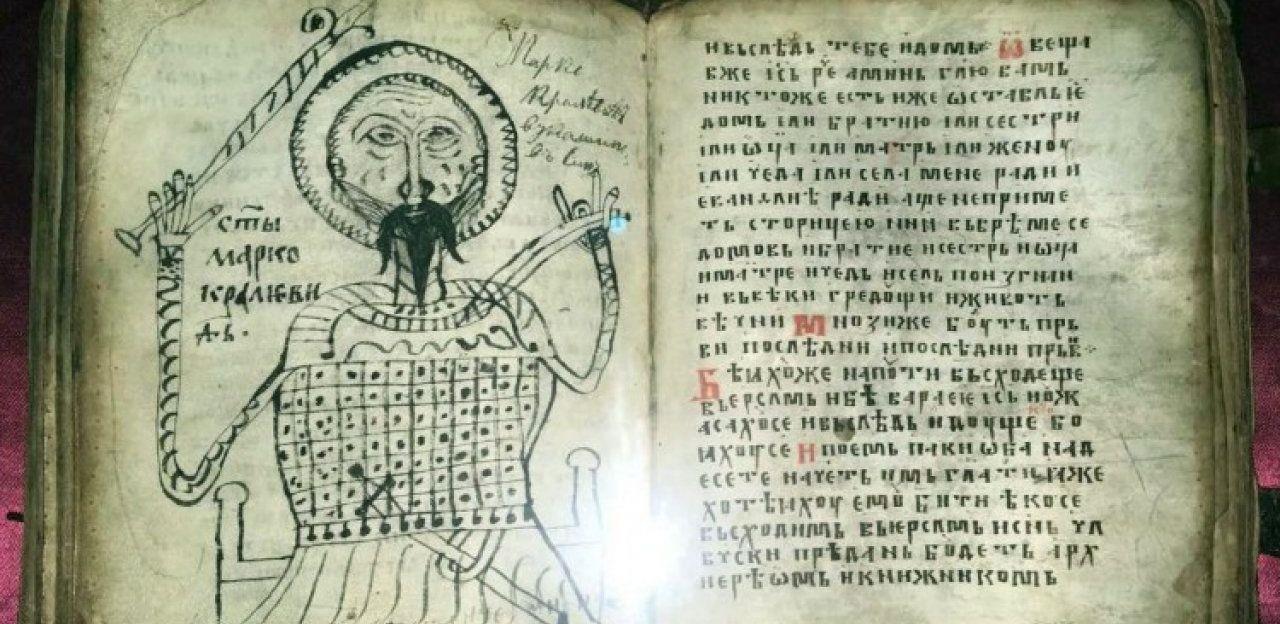 Марко
сты
марко
кралеви
дв.
и вьслѣдь тебе идомь Ѿ веща
вже ісь рѐ аминь глю вамь
никтоже есть иже ѡставль
домь или братию или сестри
или ѡца или матрь или женоу
или чеда или села мене ради и
еваньлиѣ ради аще неприме
ть сторицею нии вьврѣме се
домовь и братие и сестрь и ѡца
и матре и чедь и сель по изгнаи
и вьвѣки гредощи и животь
вѣчни Мнози же боуть прь
ви последни и последни прьв
Бѣихоже на поти вьсходеще
вьерсмь и бѣ вараеи ісь и оуж
асахосе и вьслѣдь идоуще бо
иахоусе И поемь паки ѡба над
есете начеть имь глати іаже
хотѣихоу емоу бити ѣко се
вьсходимь вьиерсмь и снь чл
вчски прѣдань бодеть арх
иерѣѡмь и книжникомь